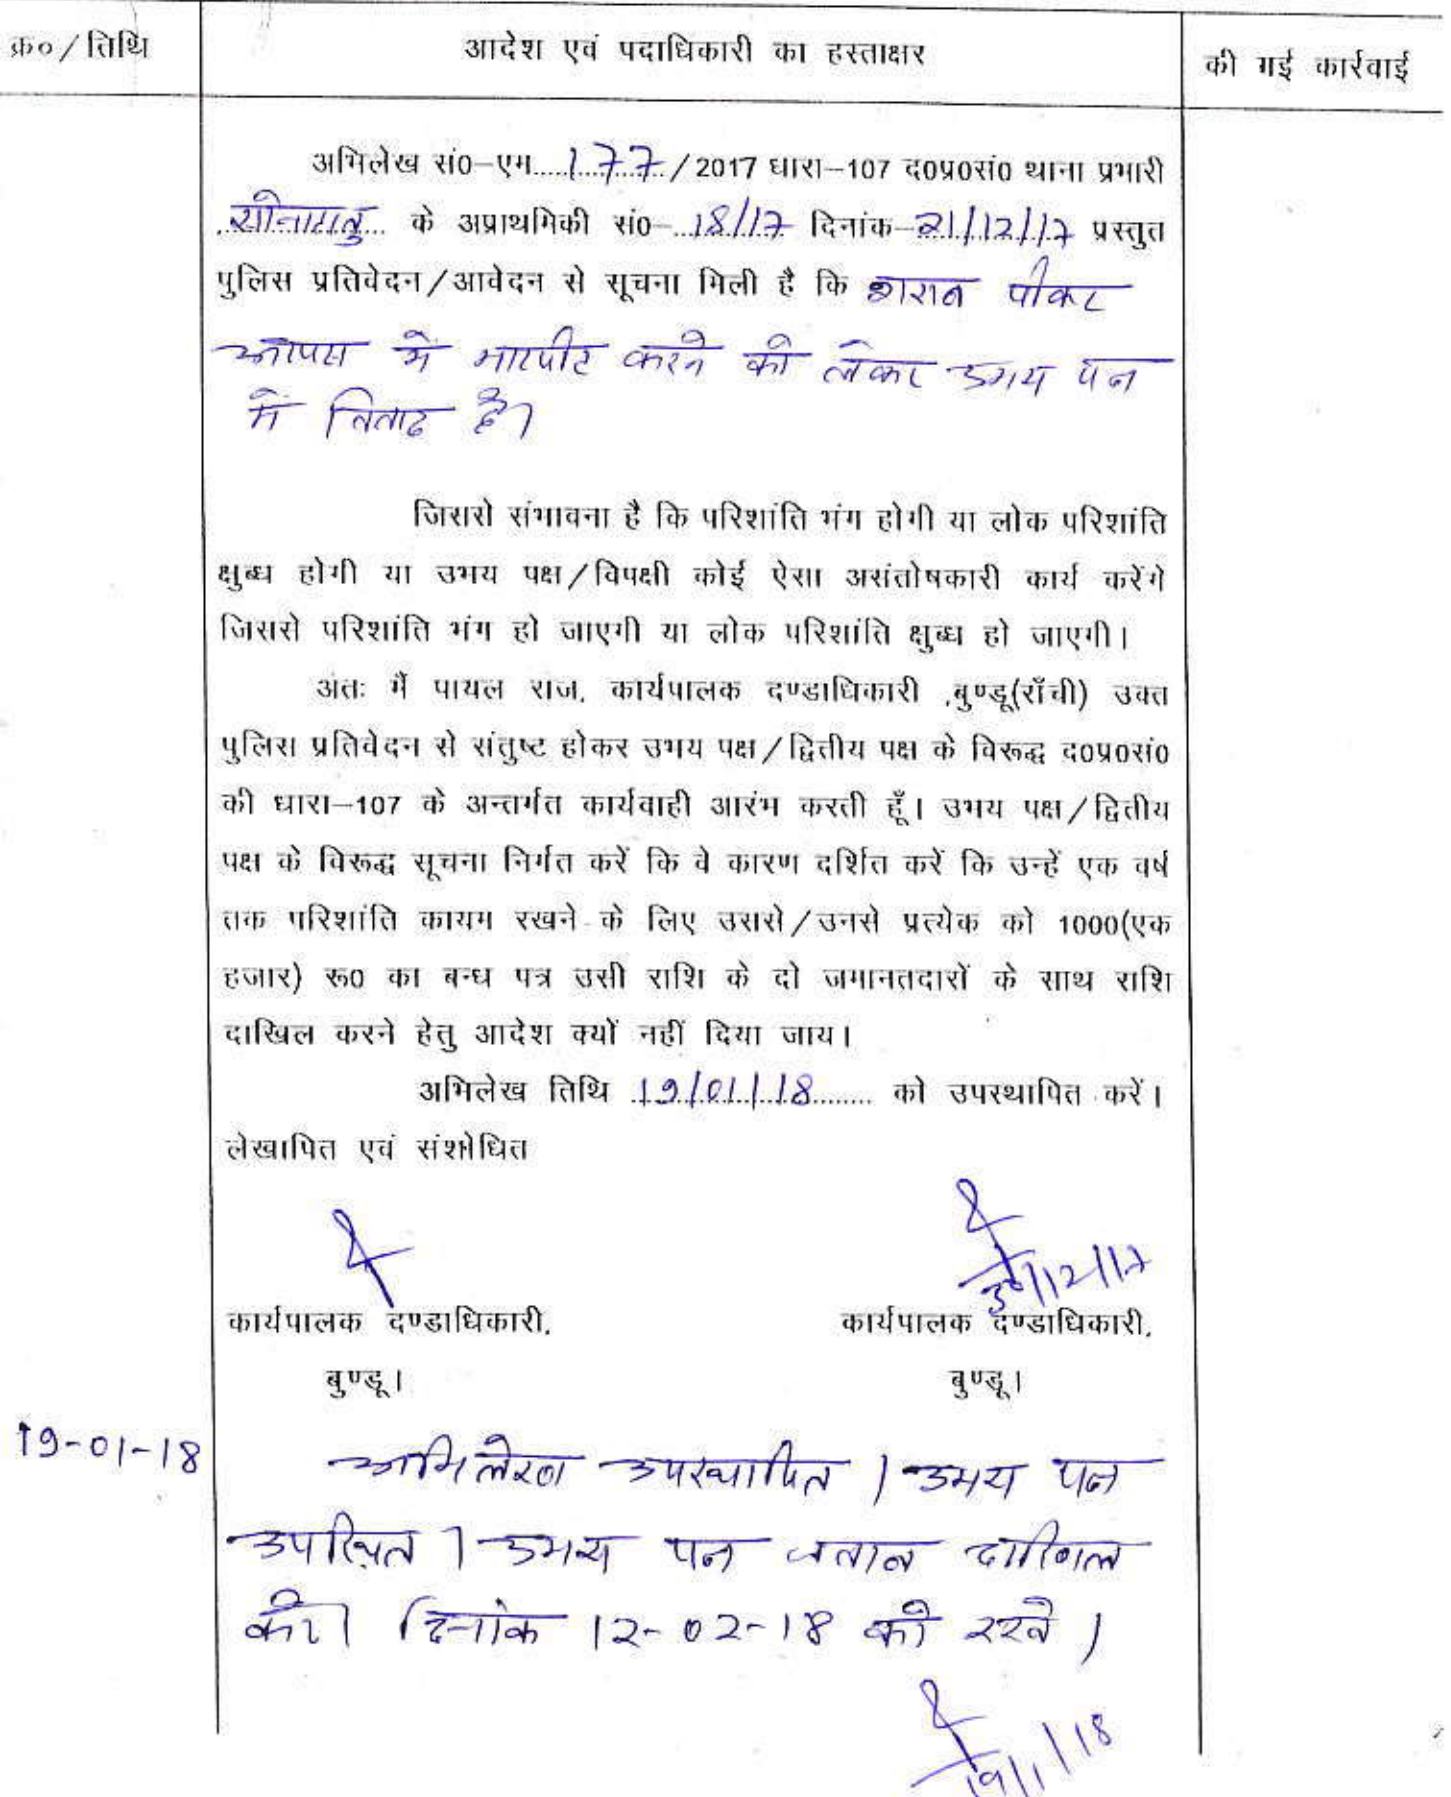 क्र०/तिथि
आदेश एवं पदाधिकारी का हस्ताक्षर
की गई कार्रवाई
अभिलेख सं0–एम.....177../2017 धारा–107 द0प्र0सं0 थाना प्रभारी
के अप्राथमिकी सं0–..18/17 दिनांक–21/12/17 प्रस्तुत
पुलिस प्रतिवेदन/आवेदन से सूचना मिली है कि शराब पीकर
आपस में मारपीट करने को लेकर उभय पक्ष
में विवाद है।
जिससे संभावना है कि परिशांति भंग होगी या लोक परिशांति
क्षुब्ध होगी या उभय पक्ष/विपक्षी कोई ऐसा असंतोषकारी कार्य करेंगे
जिससे परिशांति भंग हो जाएगी या लोक परिशांति क्षुब्ध हो जाएगी।
अतः मैं पायल राज, कार्यपालक दण्डाधिकारी ,बुण्डू(राँची) उक्त
पुलिस प्रतिवेदन से संतुष्ट होकर उभय पक्ष/द्वितीय पक्ष के विरूद्ध द0प्र0सं0
की धारा–107 के अन्तर्गत कार्यवाही आरंभ करती हूँ। उभय पक्ष/द्वितीय
पक्ष के विरूद्ध सूचना निर्गत करें कि वे कारण दर्शित करें कि उन्हें एक वर्ष
तक परिशांति कायम रखने के लिए उससे/उनसे प्रत्येक को 1000(एक
हजार) रू0 का बन्ध पत्र उसी राशि के दो जमानतदारों के साथ राशि
दाखिल करने हेतु आदेश क्यों नहीं दिया जाय।
अभिलेख तिथि 19/01/18 को उपस्थापित करें।
लेखापित एवं संशोधित
30/12/17
कार्यपालक दण्डाधिकारी, कार्यपालक दण्डाधिकारी,
बुण्डू। बुण्डू।
19-01-18 अभिलेख उपस्थापित। उभय पक्ष
उपस्थित। उभय पक्ष जवाब दाखिल
करें। दिनांक 12-02-18 को रखें।
19/1/18